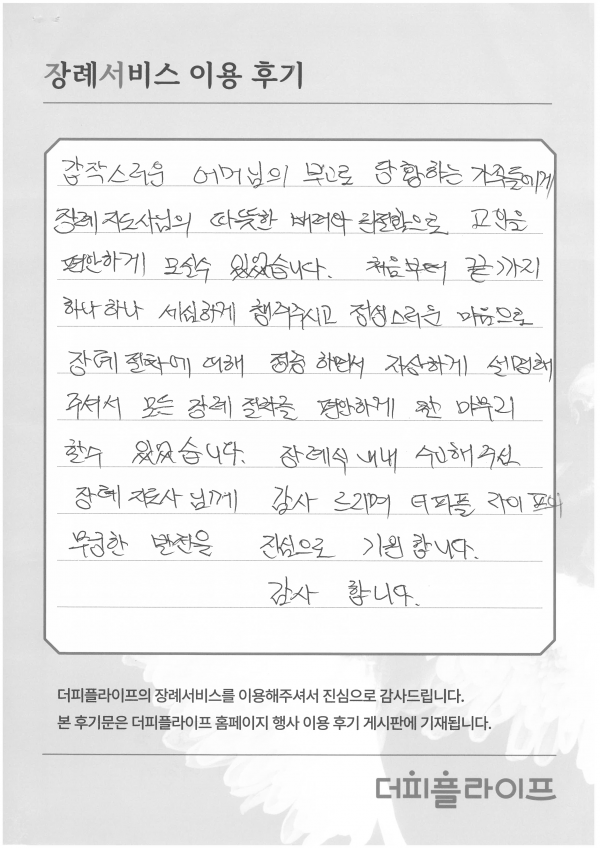 장례서비스 이용 후기
갑작스러운 어머님의 부고로 당황하는 가족들에게
장례지도사님의 따뜻한 배려와 친절함으로 고인을
편안하게 모실수 있었습니다. 처음부터 끝까지
하나하나 세심하게 챙겨주시고 정성스러운 마음으로
장례절차에 대해 정중하면서 자상하게 설명해
주셔서 모든 장례 절차를 편안하게 잘 마무리
할수 있었습니다. 장례식 내내 수고해주신
장례지도사님께 감사 드리며 더피플 라이프의
무궁한 발전을 진심으로 기원합니다.
감사 합니다.
더피플라이프의 장례서비스를 이용해주셔서 진심으로 감사드립니다.
본 후기문은 더피플라이프 홈페이지 행사 이용 후기 게시판에 기재됩니다.
더피플라이프